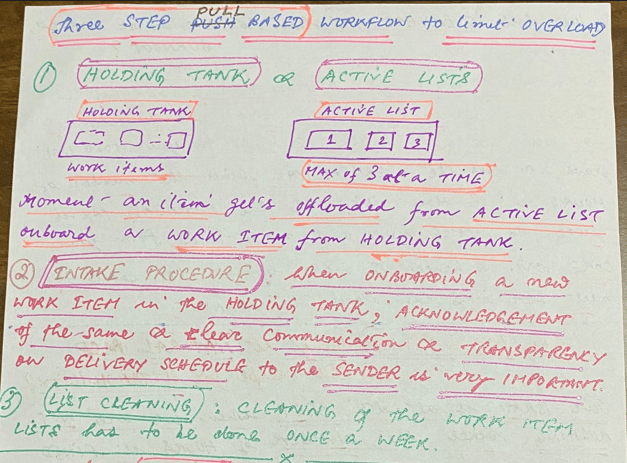 Three STEP PULL PUSH BASED WORKFLOW to limit OVERLOAD
1 HOLDING TANK or ACTIVE LISTS
HOLDING TANK ACTIVE LIST
1 2 3
Work items MAX of 3 at a TIME
Moment an item gets offloaded from ACTIVE LIST
onboard a WORK ITEM from HOLDING TANK.
2 INTAKE PROCEDURE: When ONBOARDING a new
WORK ITEM in the HOLDING TANK, ACKNOWLEDGEMENT
of the same & clear Communication or TRANSPARENCY
on DELIVERY SCHEDULE to the SENDER is very IMPORTANT.
3 LIST CLEANING: CLEANING of the WORK ITEM
LISTS has to be done ONCE a WEEK.